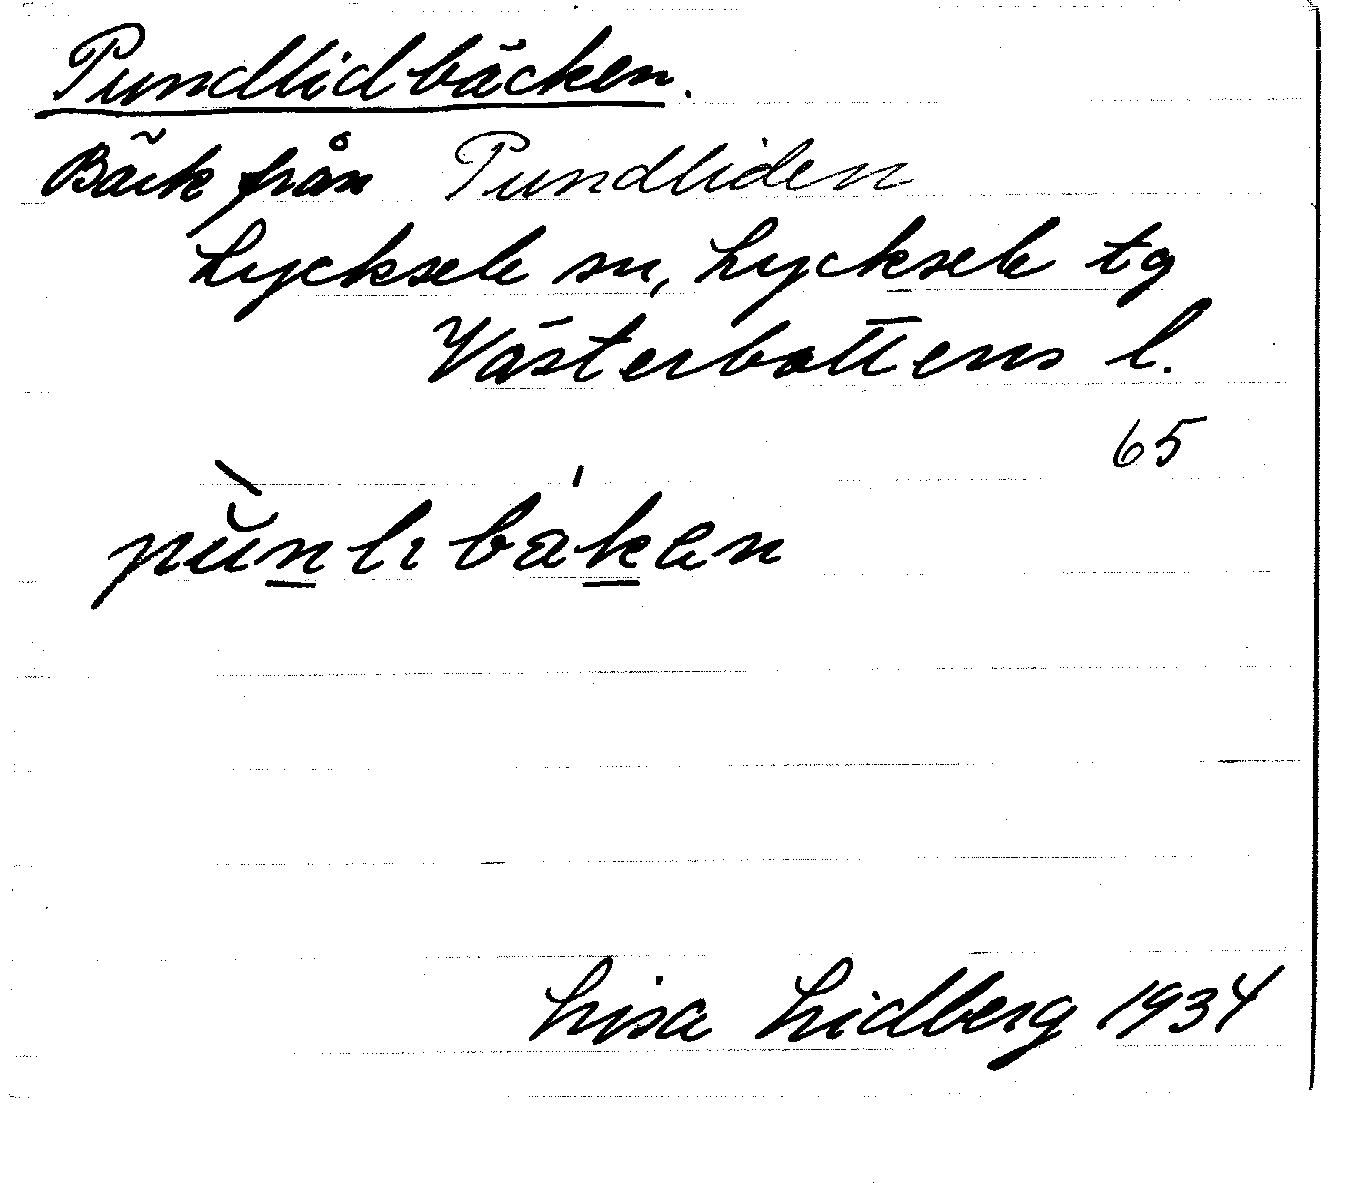 Pundlidbäcken.
Bäck från Pundliden
Lycksele sn, Lycksele tg
Västerbottens l.
65
pùn̲lıbak̲en
Lisa Lidberg 1934